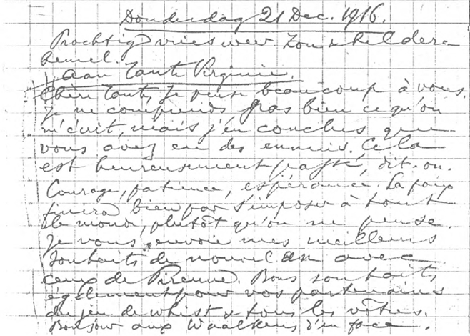 Donderdag 21 Dec. 1916.
Prachtig vries weer Zon & heldere
hemel.
Aan Tante Virginie.
Chère Tante, Je pense beaucoup à vous
je ne comprends pas bien ce qu'on
m'écrit, mais j'en conclus que
vous avez eu des ennuis. Cela
est heureusement passé, dit-on.
Courage, patience, espérance. La paix
finira bien par s'imposer à tout
le monde, plutôt qu'on ne pense.
Je vous envoie mes meilleurs
souhaits de nouvel an avec
ceux de Pirenne. Nos souhaits
également pour vos partenaires
du jeu de whist & tous les vôtres.
Bonjour aux